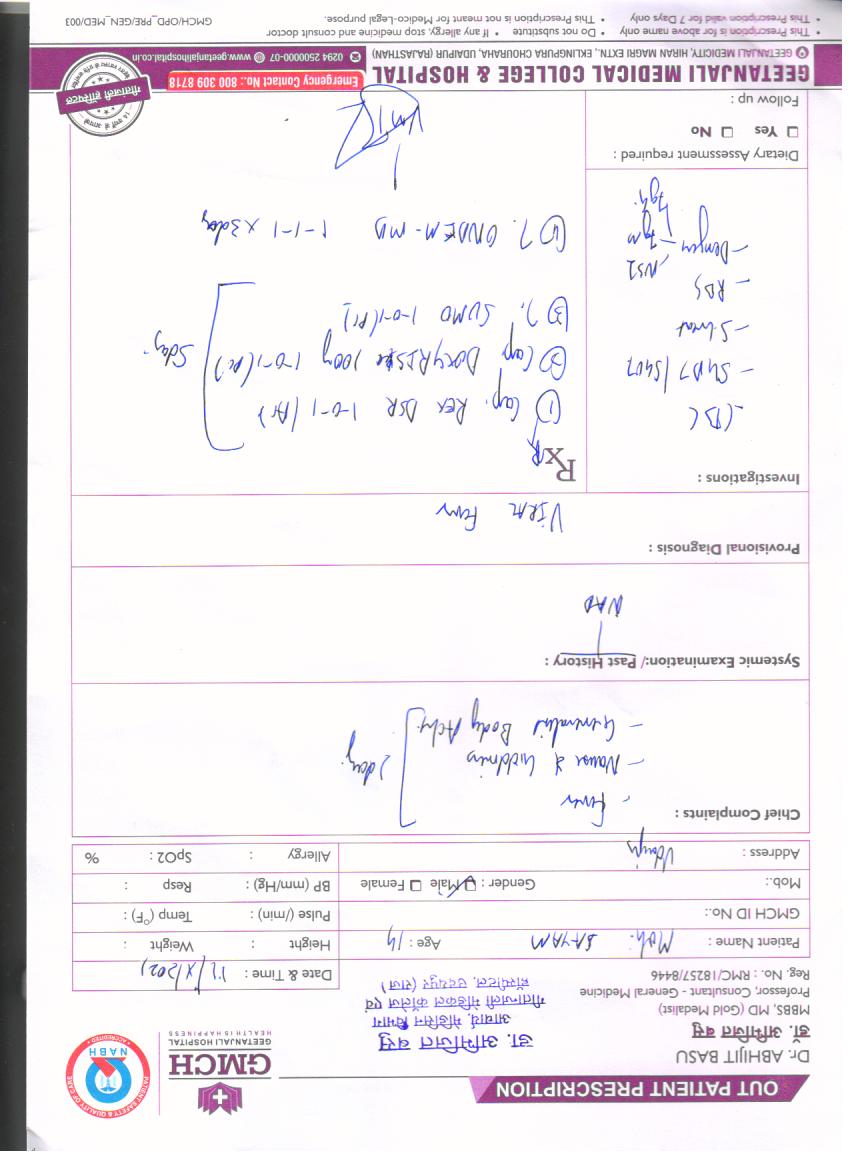 OUT PATIENT PRESCRIPTION
GMCH
GEETANJALI HOSPITAL
HEALTH IS HAPPINESS
PATIENT SAFETY & QUALITY OF CARE
NABH
ACCREDITED
Dr. ABHIJIT BASU
डॉ. अभिजित बसु
MBBS, MD (Gold Medalist)
Professor, Consultant - General Medicine
Reg. No.: RMC/18257/8446
डॉ. अभिजित बसु
आचार्य, मेडिसिन विभाग
गीतान्जली मेडिकल कॉलेज एवं
हॉस्पीटल, उदयपुर (राज)
Date & Time :
Patient Name : Moh.
Age : 14
Height : Weight :
GMCH ID No.:
Pulse (/min) : Temp (°F) :
Mob.:
Gender : Male Female
BP (mm/Hg) : Resp :
Address : Udaipur
Allergy : SpO2 : %
Chief Complaints :
- Fever
- Nausea & Giddiness
- Generalised Body Ache
2 days
Systemic Examination:/ Past History :
NAD
Provisional Diagnosis :
Viral Fever
Investigations :
- CBC
- SGOT / SGPT
- S.Creat
- RBS
- Dengue
NS1
IgM
IgG
Rx
① Cap. REX DSR 1-0-1 (Ac)
② Cap 100mg 1-0-1 (Pc)
③ T. SUMO 1-0-1 (Pc)
5 days
④ T. ONDEM-MD 1-1-1 x 3 days
Dietary Assessment required :
Yes No
Follow up :
गीतांजली हॉस्पिटल
GEETANJALI MEDICAL COLLEGE & HOSPITAL
Emergency Contact No.: 800 309 8718
GEETANJALI MEDICITY, HIRAN MAGRI EXTN., EKLINGPURA CHOURAHA, UDAIPUR (RAJASTHAN)
0294 2500000-07 www.geetanjalihospital.co.in
• This Prescription is for above name only • Do not substitute • If any allergy, stop medicine and consult doctor
• This Prescription valid for 7 Days only • This Prescription is not meant for Medico-Legal purpose.
GMCH/OPD_PRE/GEN_MED/003